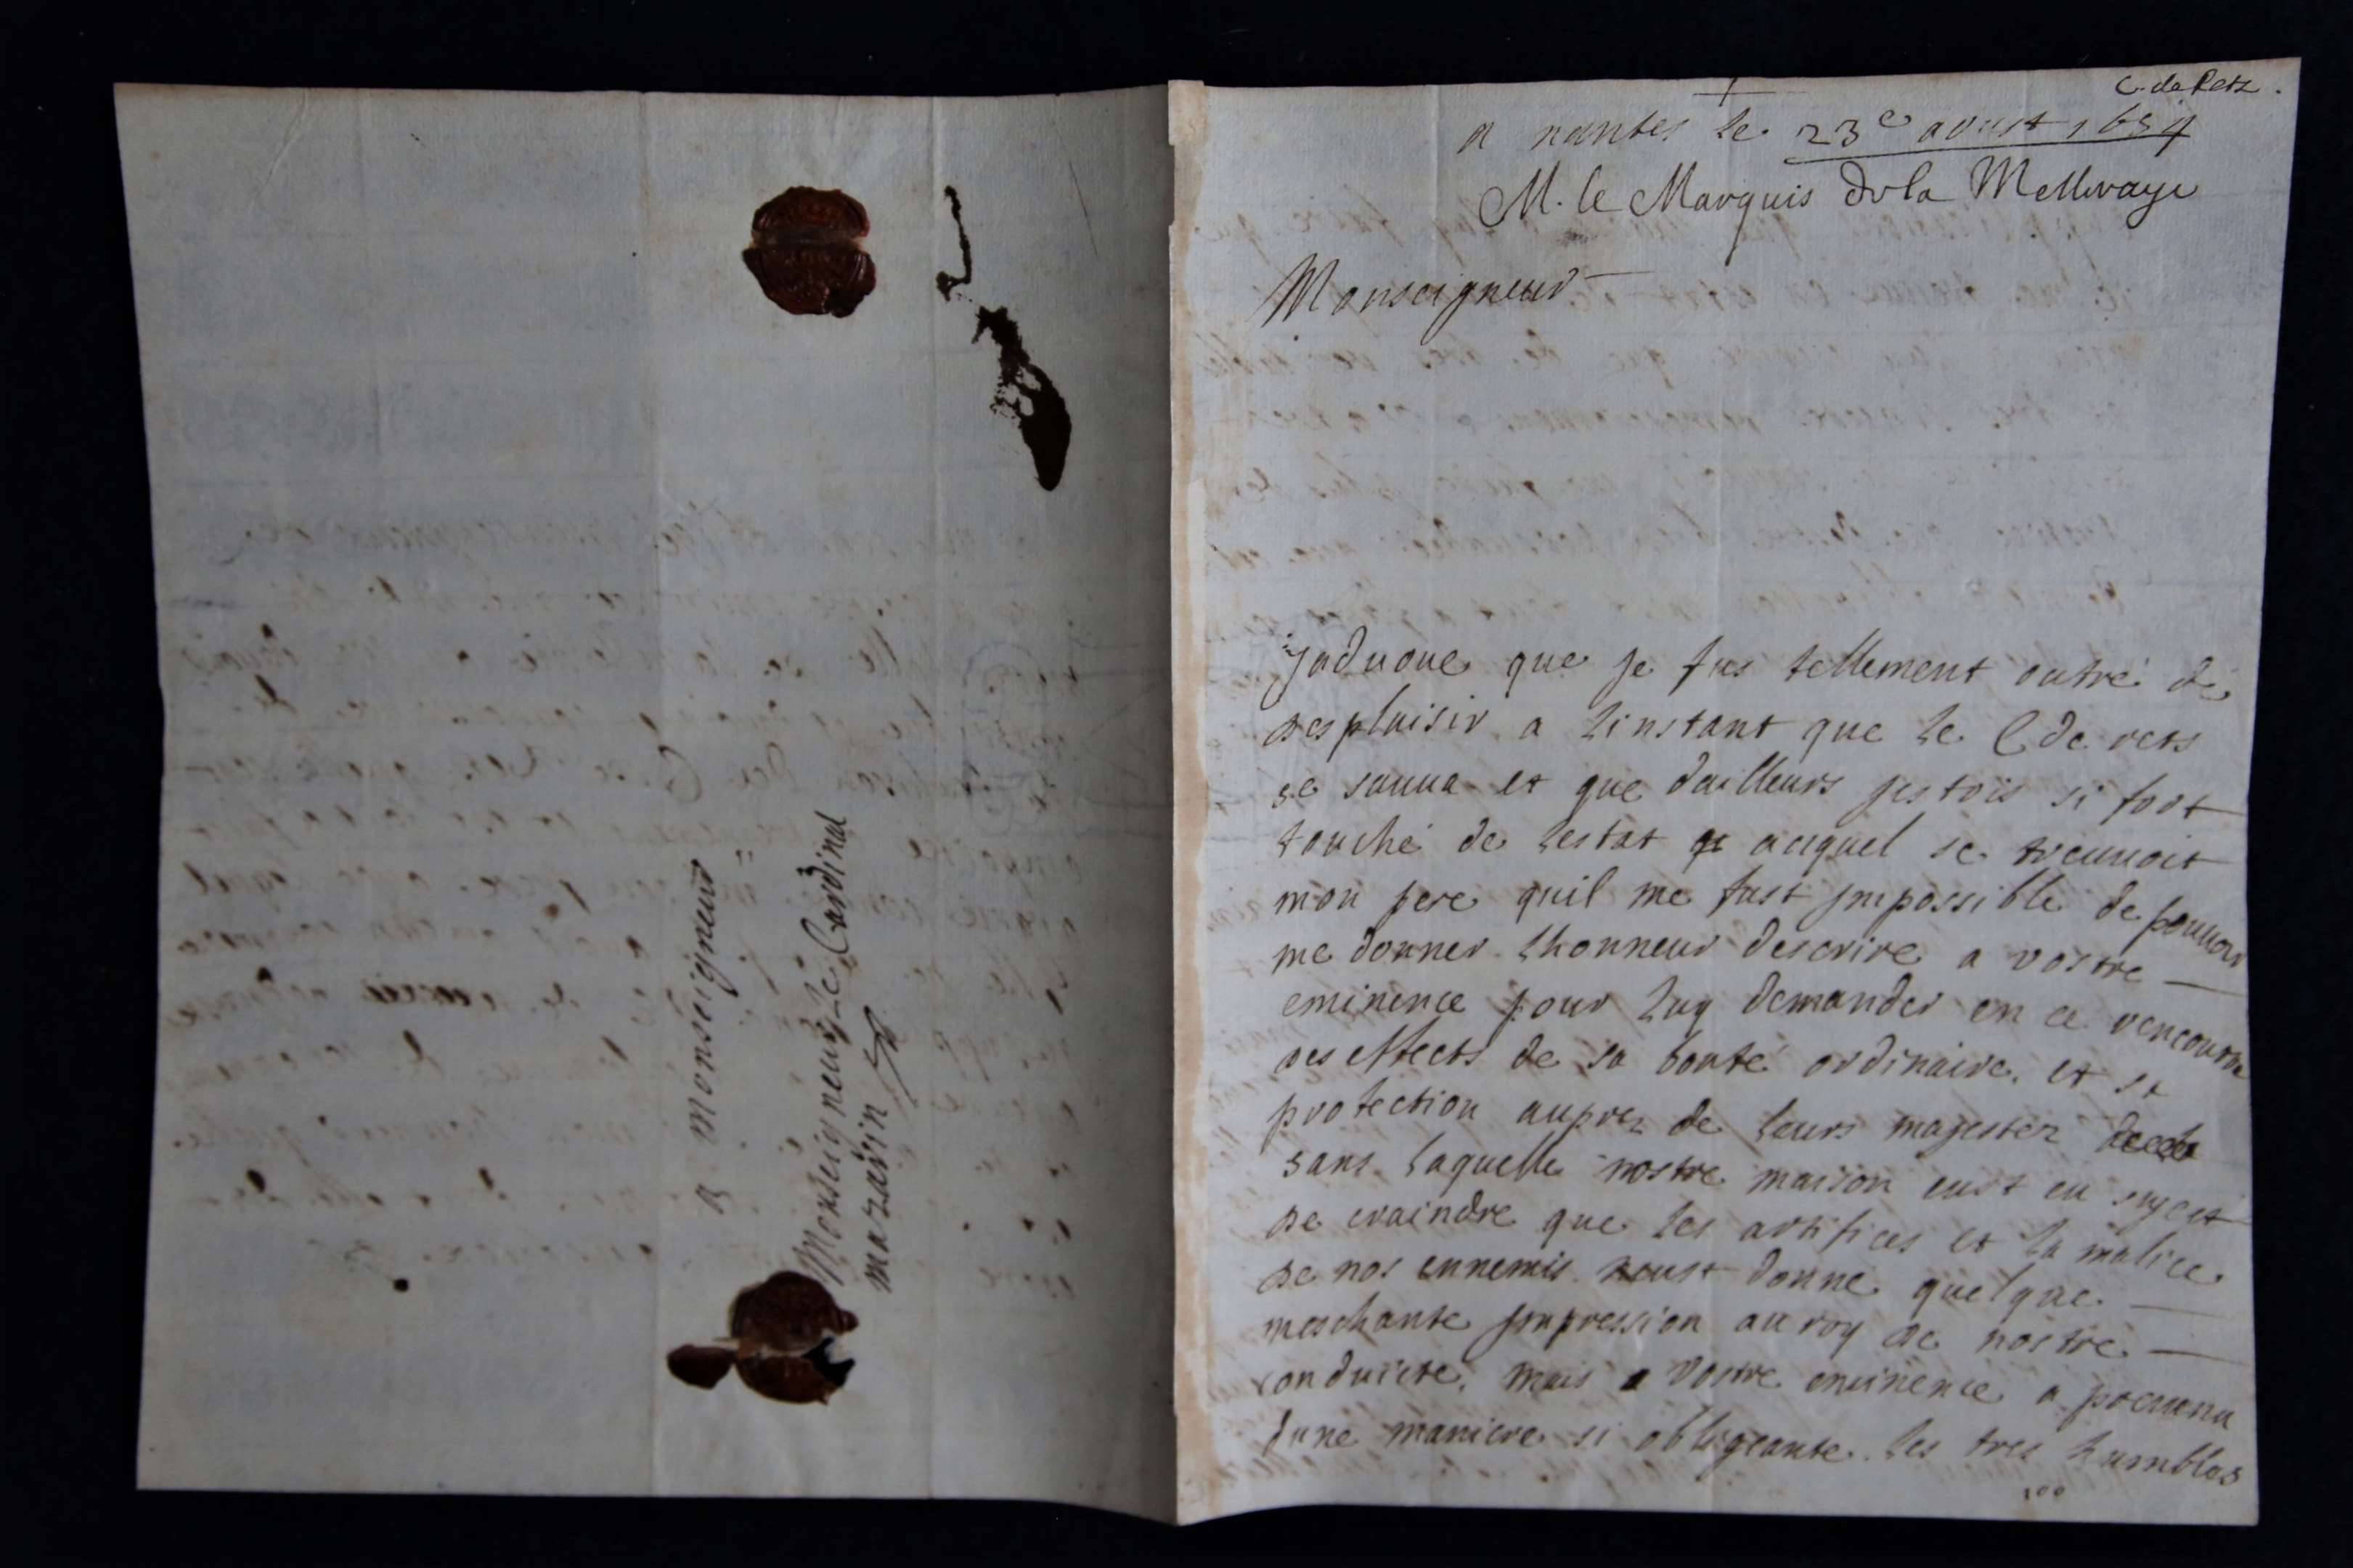 a monseigneur
Monseigneur le Cardinal
mazarin
C. de Retz.
a nantes le 23e aoust 1654
M. le Marquis de la Melleraye
Monseigneur
jaduoue que je fus tellement outré de
desplaisir a linstant que le C de rets
se sauua et que dailleurs jestois si fort
touché de lestat auquel se treuuoit
mon pere quil me fust jmpossible de pouuoir
me donner lhonneur descrire a vostre
eminence pour luy demander en ce rencontre
des effects de sa bonté ordinaire et sa
protection auprez de leurs magestez
sans laquelle nostre maison eust eu suject
de craindre que les artifices et la malice
de nos ennemis neust donné quelque
meschante jmpression au roy de nostre
conduicte, mais vostre eminence a preuenu
dune maniere si obligeante les tres humbles